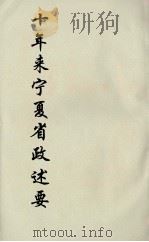 十年来宁夏省政述要
mtoou.info